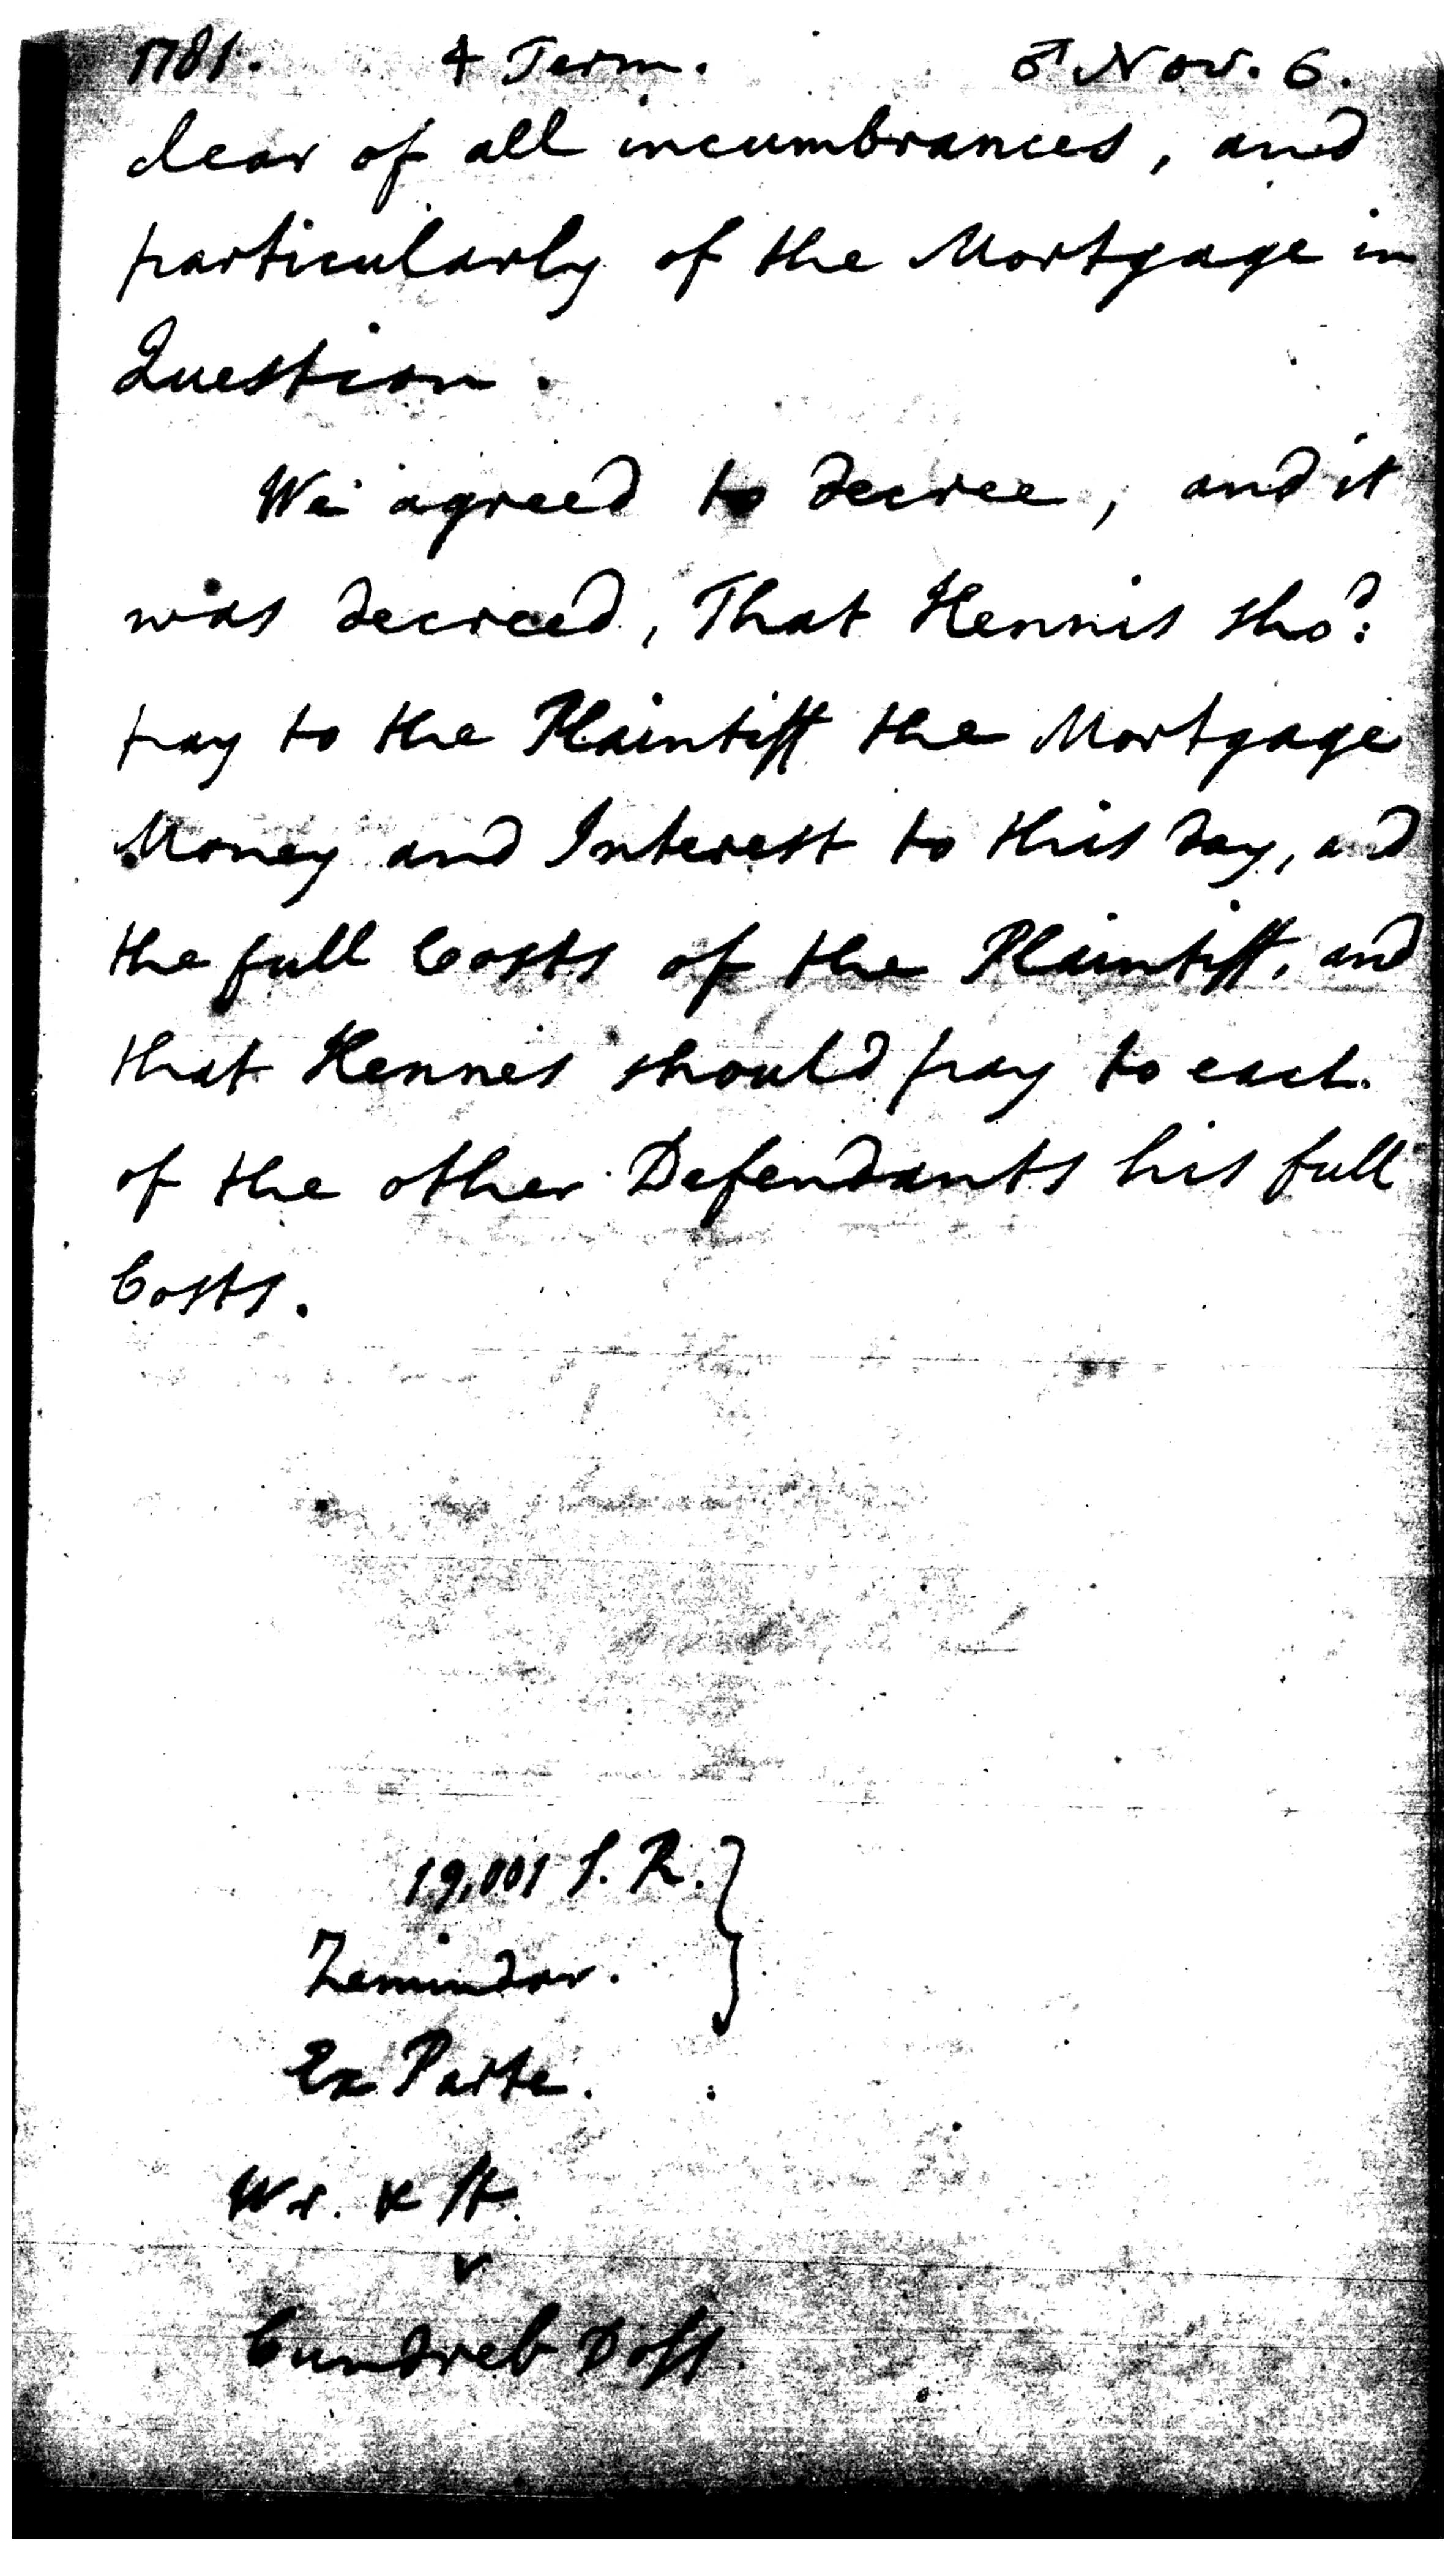 1781. 4 Term. ♂ Nov. 6.
clear of all incumbrances, and
particularly of the Mortgage in
Question.
We agreed to decree, and it
was decreed, That Hennis sho.d
pay to the Plaintiff the Mortgage
Money and Interest to this day, and
the full Costs of the Plaintiff, and
that Hennes should pay to each
of the other Defendants his full
Costs.
19,001 S. R.
Zemindar.
Ex Parte.
v
Doss.